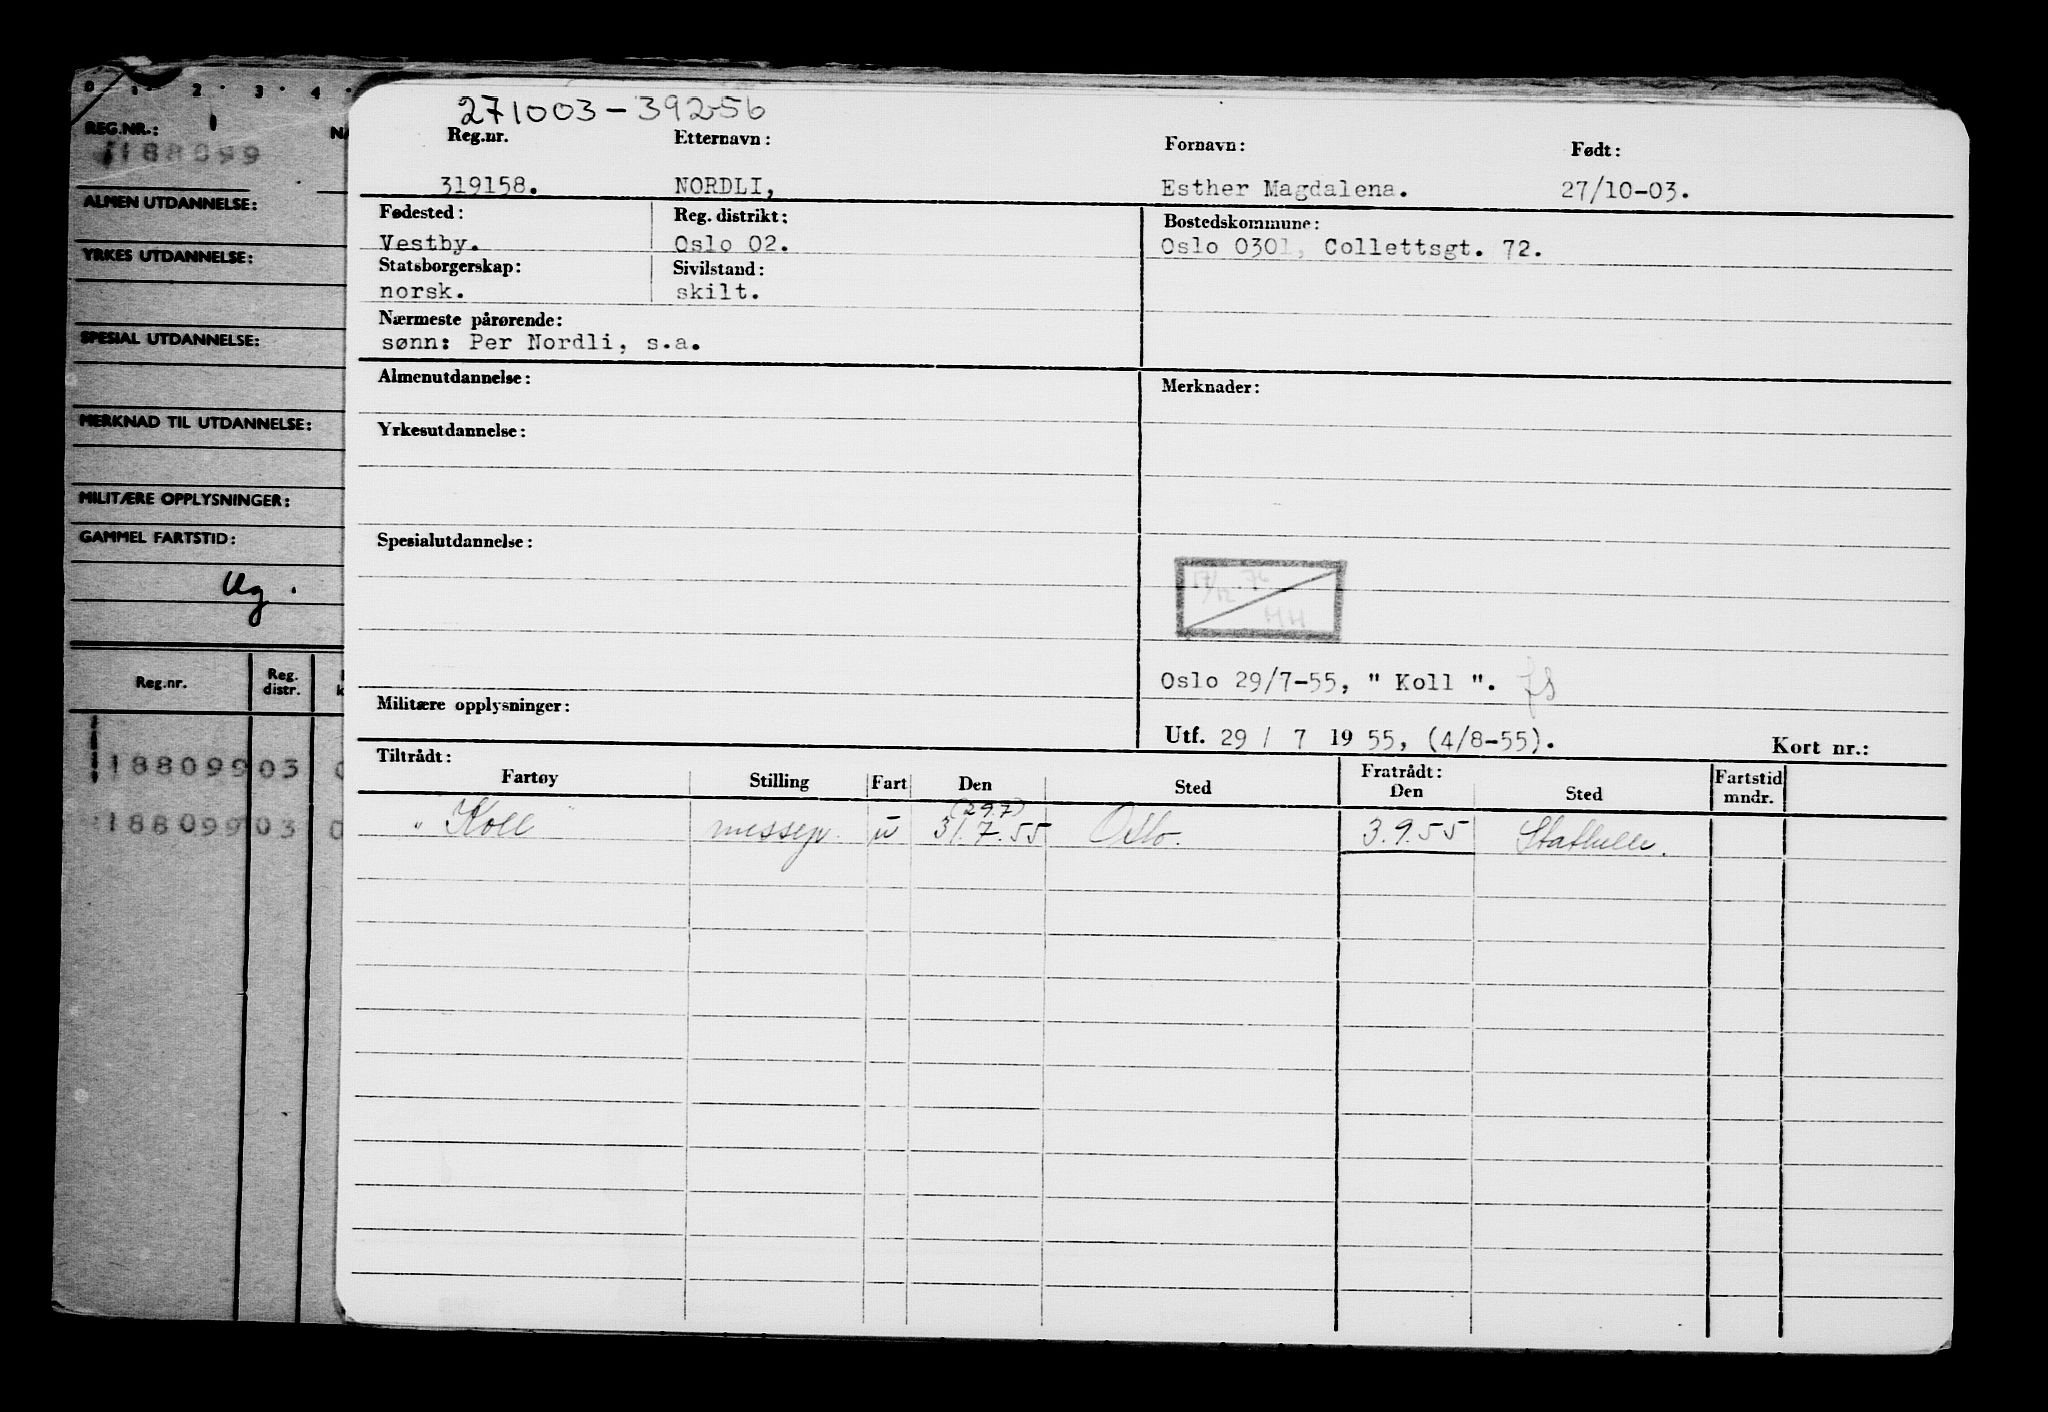 0 1 2 3 4
REG.NR.:
188099
ALMEN UTDANNELSE:
YRKES UTDANNELSE:
SPESIAL UTDANNELSE:
MERKNAD TIL UTDANNELSE:
MILITÆRE OPPLYSNINGER:
GAMMEL FARTSTID:
Ug.
Reg.nr. Reg. distr.
188099 03 0
188099 03 0
271003-39256
Reg.nr. Etternavn: Fornavn: Født:
319158. NORDLI, Esther Magdalena. 27/10-03.
Fødested: Reg. distrikt: Bostedskommune:
Vestby. Oslo 02. Oslo 0301, Collettsgt. 72.
Statsborgerskap: Sivilstand:
norsk. skilt.
Nærmeste pårørende:
sønn: Per Nordli, s.a.
Almenutdannelse: Merknader:
Yrkesutdannelse:
Spesialutdannelse:
17/12.76
HH
Oslo 29/7-55, " Koll ".
Militære opplysninger:
Utf. 29 / 7 19 55, (4/8-55). Kort nr.:
Tiltrådt: Fratrådt: Fartstid
Fartøy Stilling Fart Den Sted Den Sted mndr.
(29.7)
" Koll messep. u 31.7.55 Oslo. 3.9.55 Stathelle.